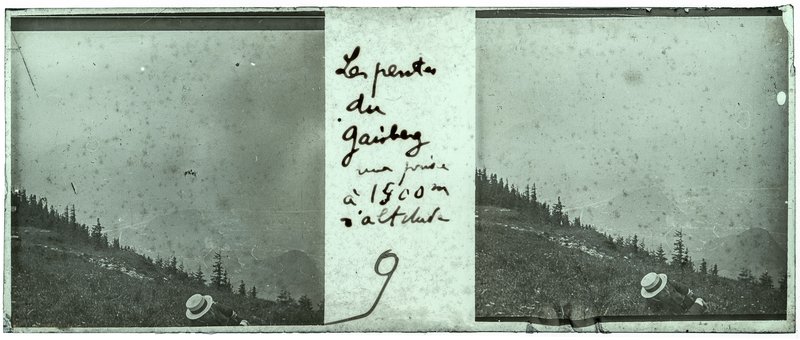 Les pentes
du
Gaisberg
vue prise
à 1900m
d'altitude
9